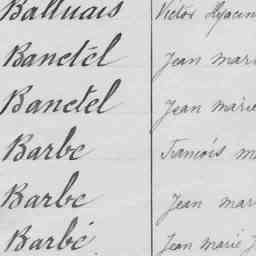 Balluais Victor Hyacin
Banctël Jean mari
Banctel Jean marie
Barbe François m
Barbe Jean mar
Barbé Jean Marie J